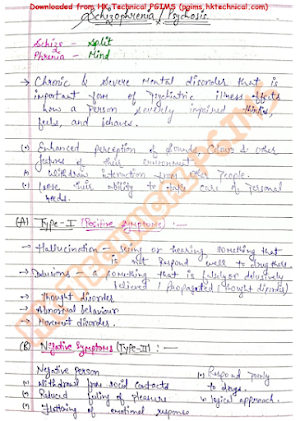 Downloaded from HK Technical PGIMS (pgims.hktechnical.com)
Schizophrenia / Psychosis
Schizo - Split
Phrenia - Mind
→ Chronic & severe mental disorder that is
important form of Psychiatric illness effects
how a person severely impaired thinks,
feels, and behaves.
Enhanced perception of Sounds Colour & other
features of their environment
Withdraw interaction from other People.
Loose their ability to take care of Personal
needs.
(A) Type-I (Positive Symptoms) :-
→ Hallucination - seeing or hearing something that
is not Respond well to drug there
→ Delusions - a something that is falsely or delusively
believed / Propagated (thought disorder)
→ Thought disorder
→ Abnormal behaviour
→ Movement disorder.
(B) Negative Symptoms (Type-II) :-
Negative Person
Withdrawal from social contacts
Reduced feeling of pleasure
Flattening of emotional response
Respond poorly
to drugs.
logical approach.